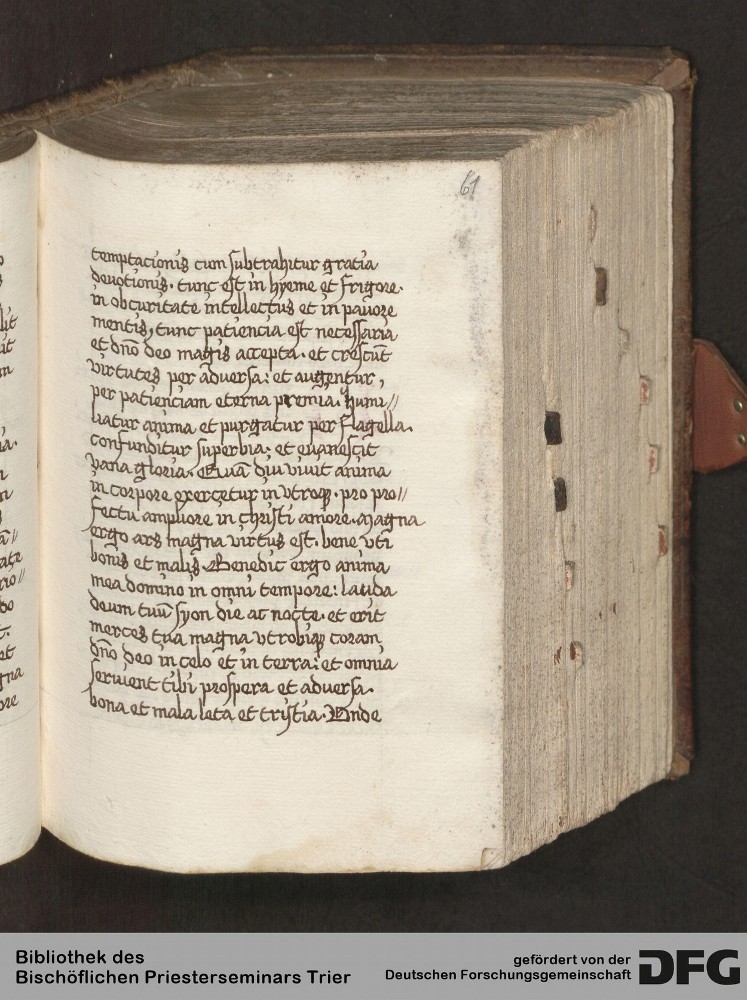 61
temptacionis cum subtrahitur gratia
deuotionis. tunc est in hyeme et frigore.
in obcuritate intellectus et in pauore
mentis, tunc patiencia est necessaria
et dn̄o deo magis accepta. et crescūt
virtutes per aduersa: et augentur,
per patienciam eterna premia. humi//
liatur anima et purgatur per flagella.
confunditur superbia: et euanescit
vana gloria. diu viuit anima
in corpore exercetur in vtroqꝫ. pro pro//
fectu ampliore in christi amore. Magna
ergo ars magna virtus est. bene vti
bonis et malis. Benedic ergo anima
mea domino in omni tempore: lauda
deum tuū syon die ac nocte. et erit
merces tua magna vtrobiqꝫ coram
dn̄o deo in celo et in terra: et omnia
seruient tibi prospera et aduersa.
bona et mala leta et tristia. Vnde
Bibliothek des
Bischöflichen Priesterseminars Trier
gefördert von der
Deutschen Forschungsgemeinschaft
DFG